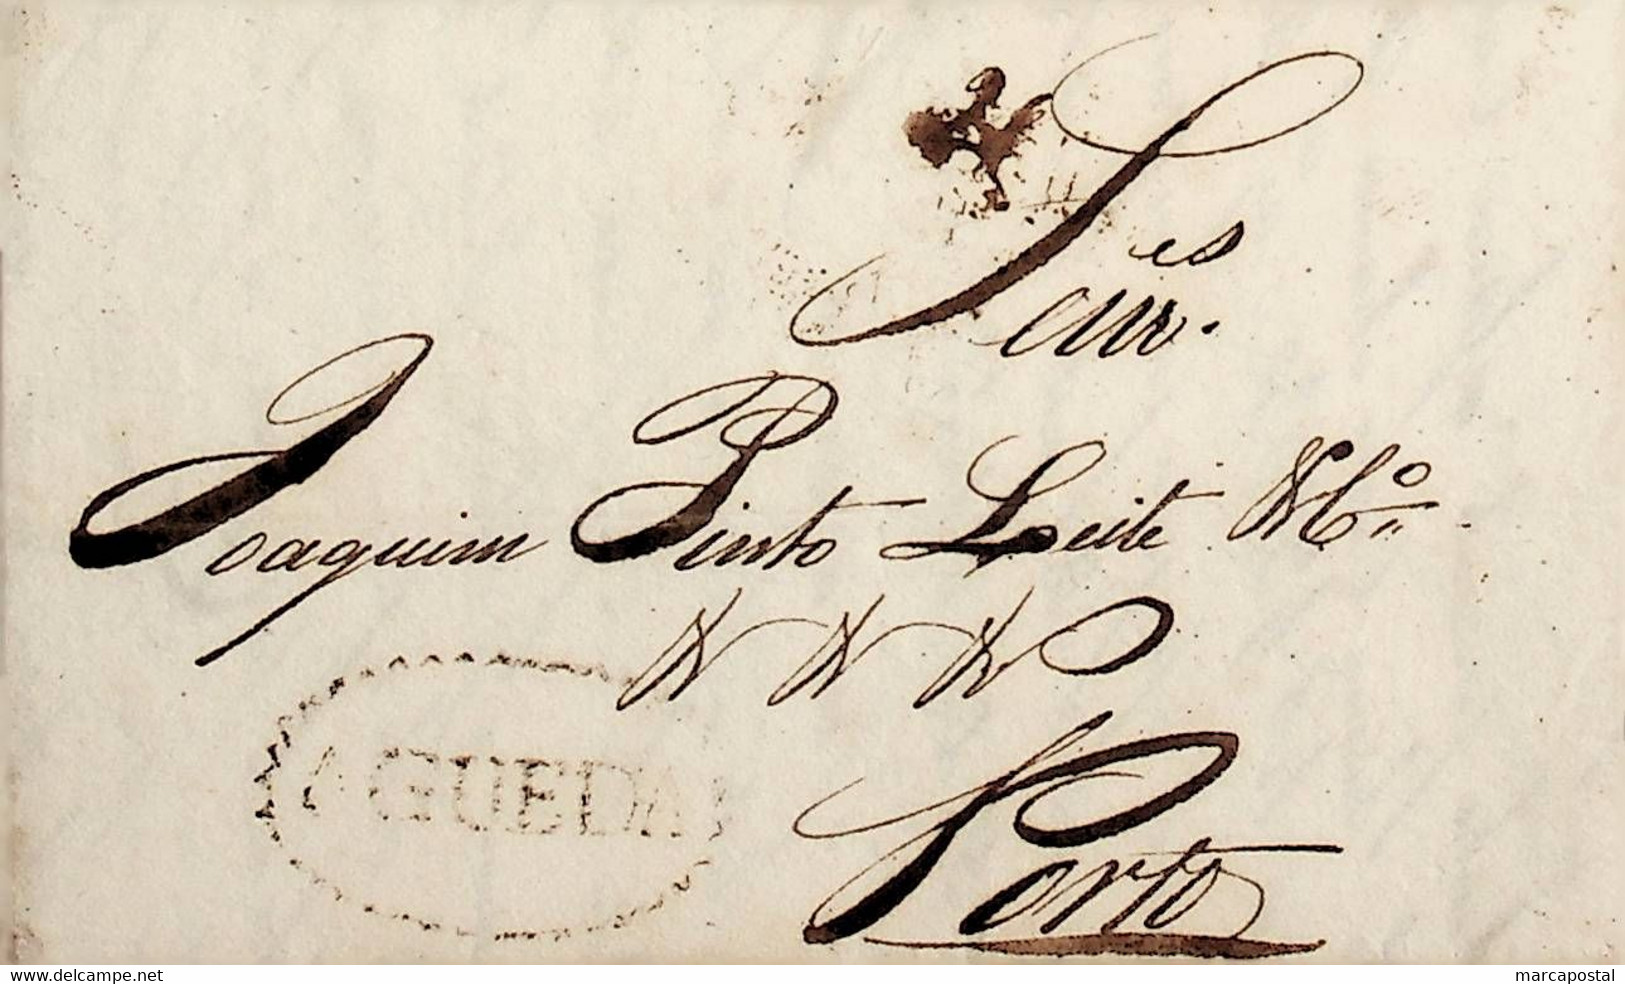 Senr.es
Joaquim Pinto Leite & Cº
Porto
AGUEDA
www.delcampe.net
marcapostal